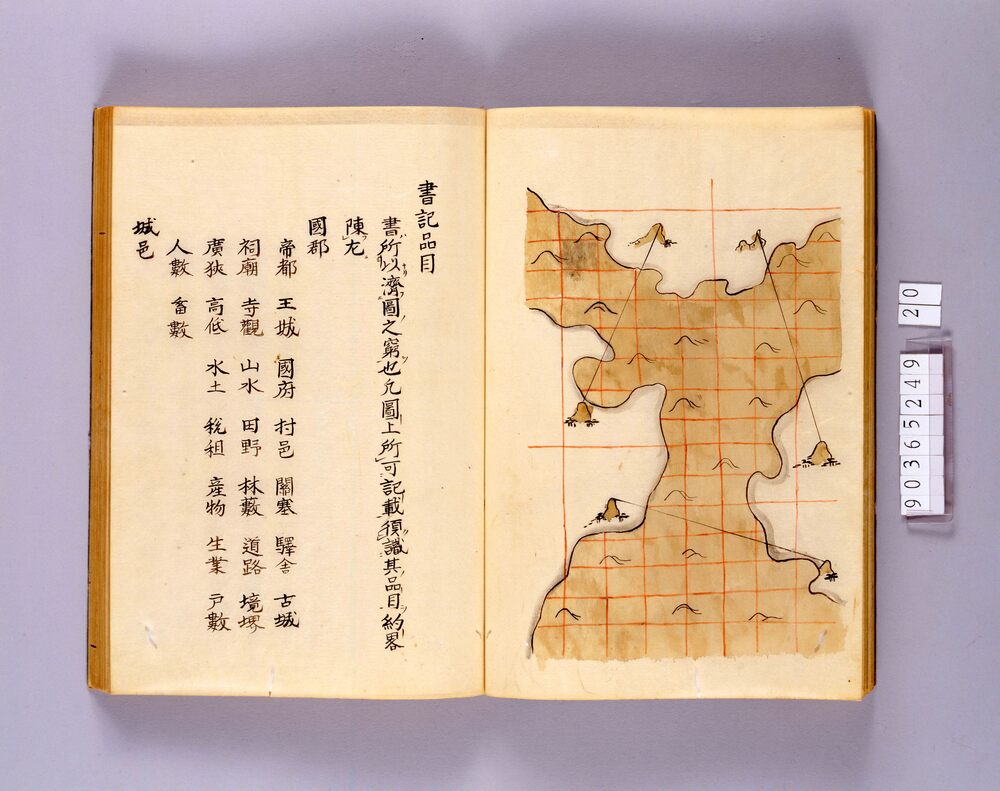 書記品目
書所以濟圖之窮也凡圖上所可記載須識其品目約畧
陳左
國郡
帝都 王城 國府 村邑 關塞 驛舍 古城
祠廟 寺觀 山水 田野 林藪 道路 境堺
廣狹 高低 水土 税租 産物 生業 戸數
人數 畜數
城邑
20
90365249